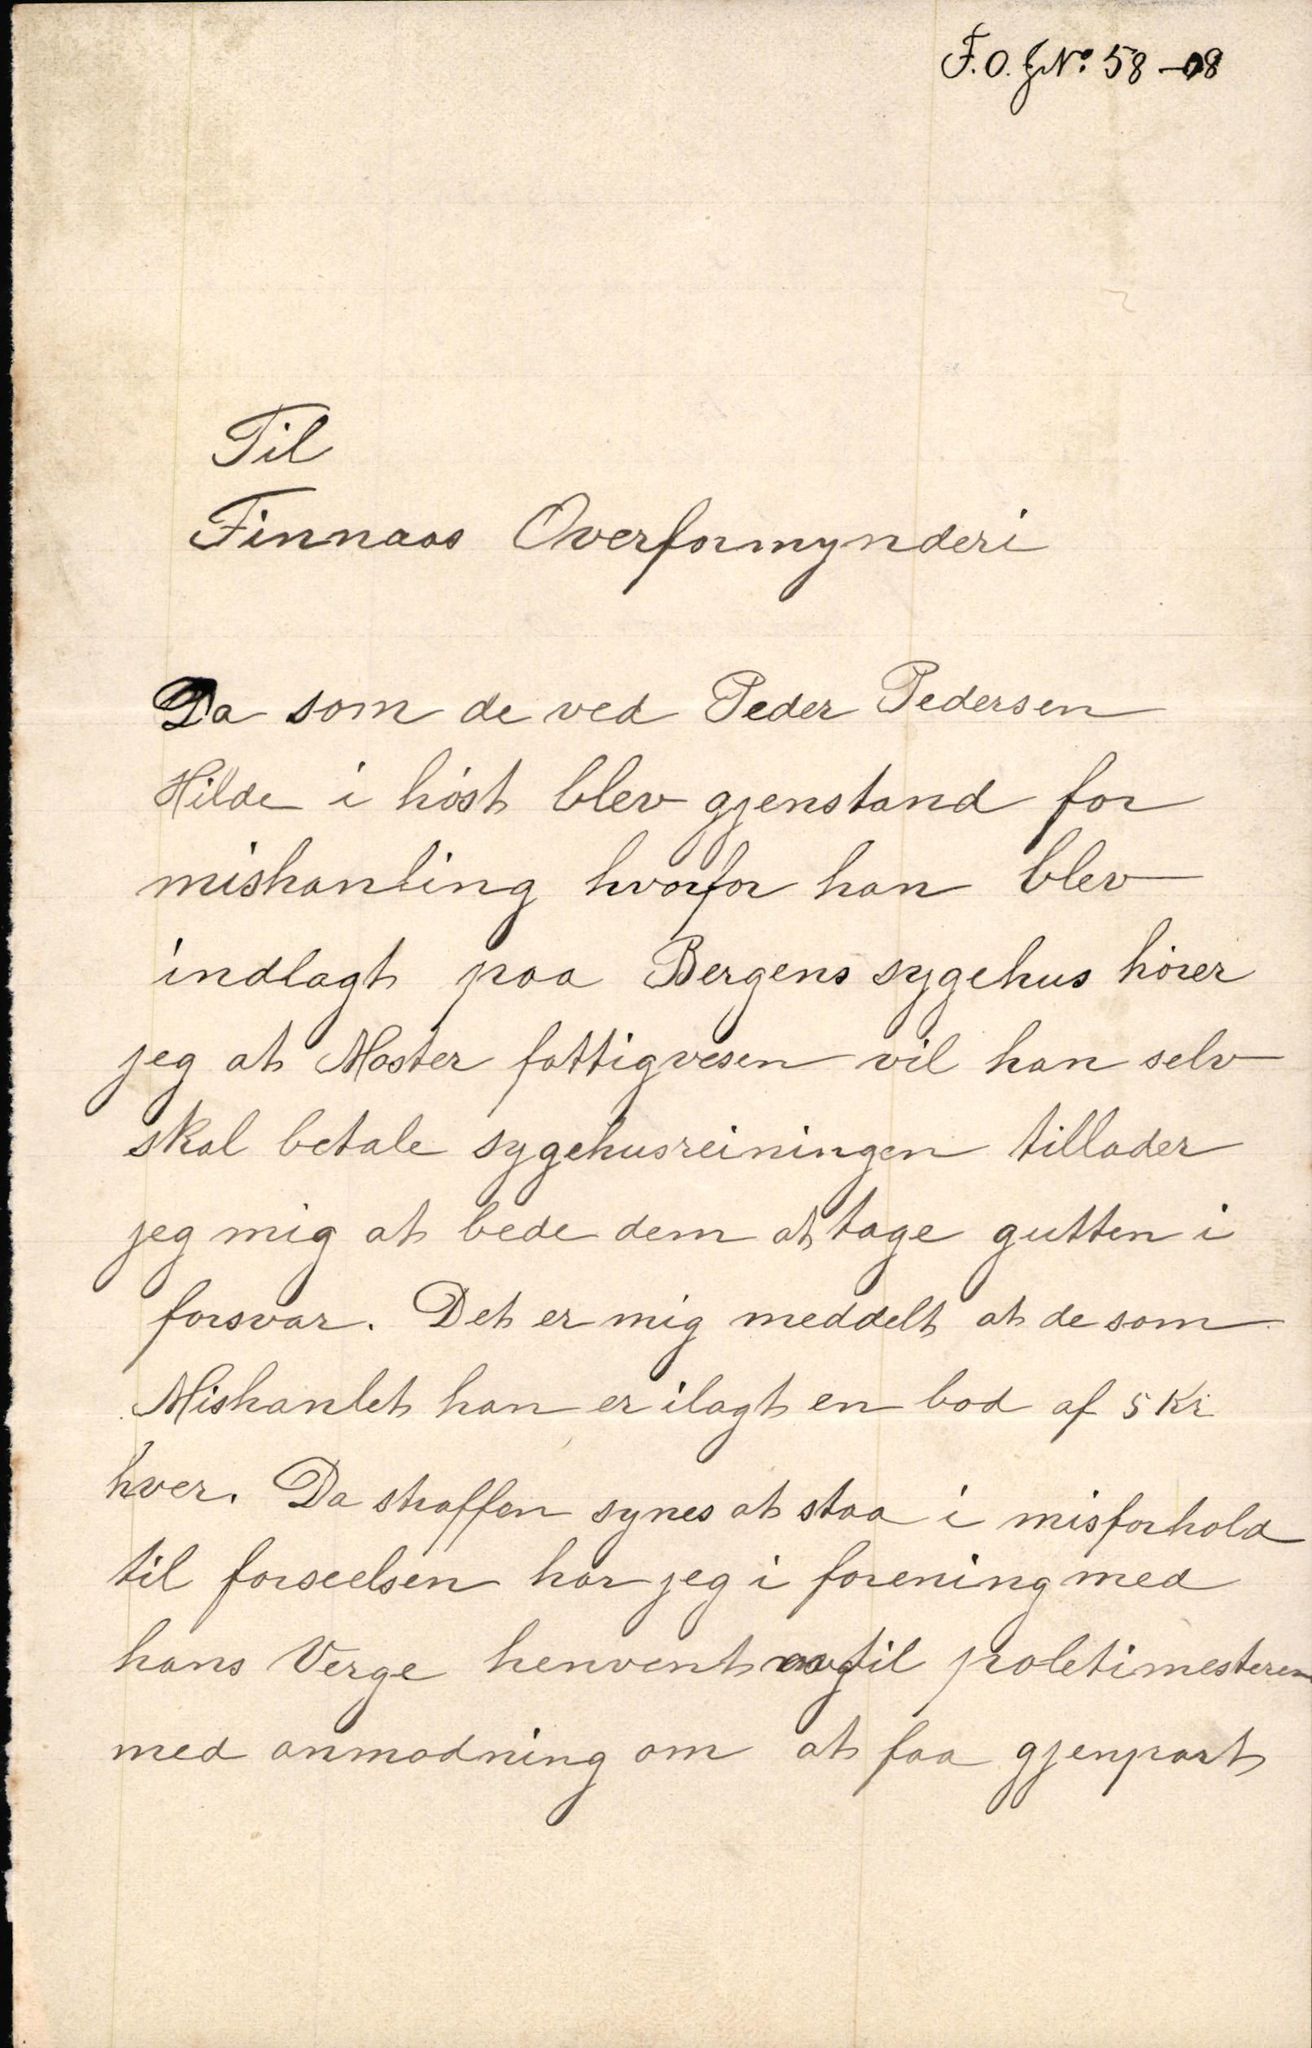 F.O. J.No. 58-08
Til
Finnaas Overformynderi
Da som de ved Peder Pedersen
Hilde i høst blev gjenstand for
mishanling hvorfor han blev
indlagt paa Bergens sygehus hører
jeg at Moster fattigvesen vil han selv
skal betale sygehusreiningen tillader
jeg mig at bede dem at tage gutten i
forsvar. Det er mig meddelt at de som
Mishanlet han er ilagt en bod af 5 Kr
hver. Da straffen synes at staa i misforhold
til forseelsen har jeg i forening med
hans Verge henvent til poletimesteren
med anmodning om at faa gjenpart